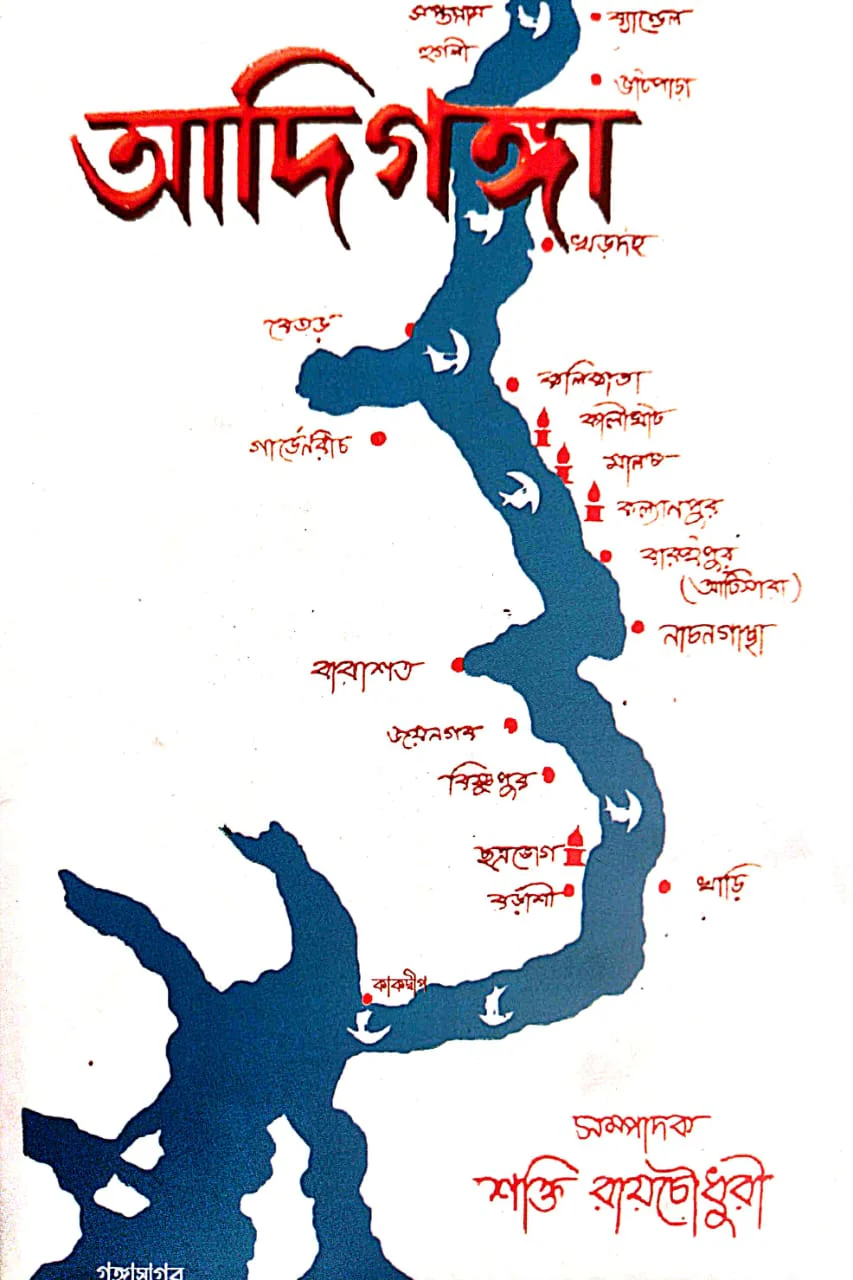 সপ্তগ্রাম
ব্যান্ডেল
হুগলী
ভাটপাড়া
আদিগঙ্গা
খড়দহ
বেতড়
কলিকাতা
কালীঘাট
গার্ডেনরীচ
মালঞ্চ
কল্যানপুর
বারুইপুর
(আটিসারা)
নাচনগাছা
বারাশত
জয়নগর
বিষ্ণুপুর
ছত্রভোগ
খাড়ি
বড়াশী
কাকদ্বীপ
সম্পাদক
শক্তি রায়চৌধুরী
গঙ্গাসাগর